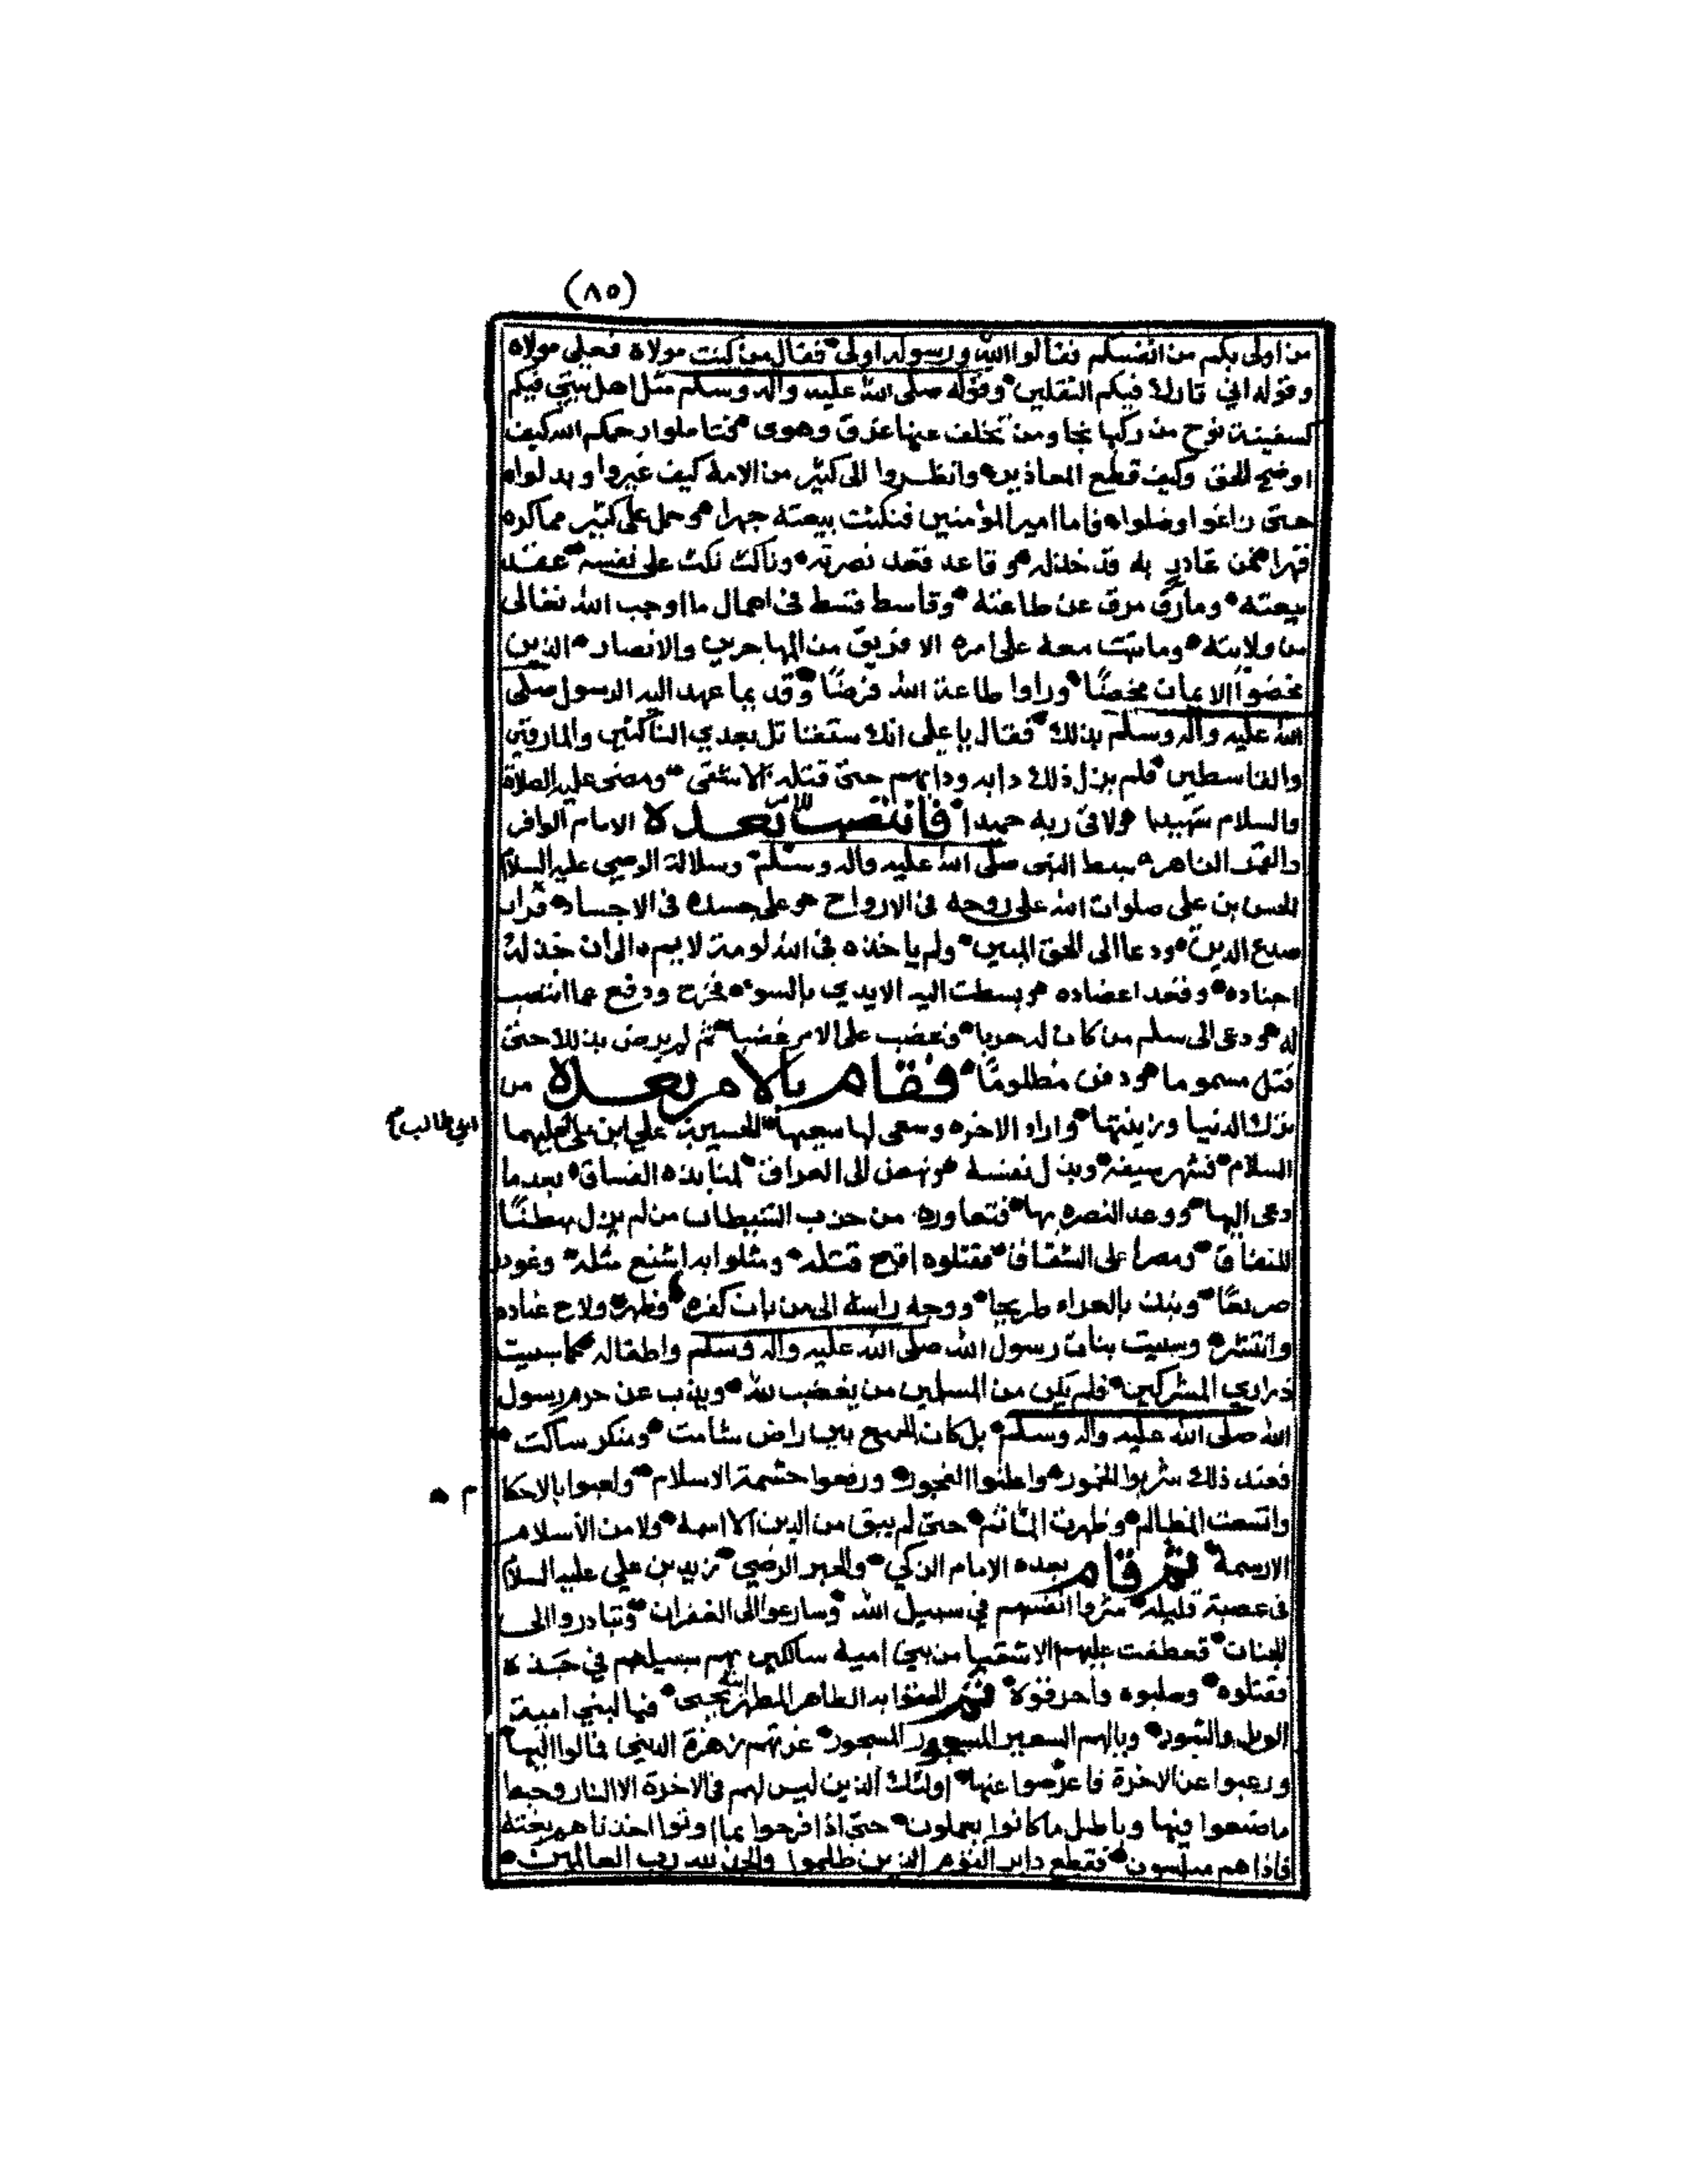 (٨٥)
من اولى بكم من انفسكم فقالوا الله ورسوله اولى فقال من كنت مولاه فعلي مولاه
وقوله اني تارك فيكم الثقلين وقوله صلى الله عليه واله وسلم مثل اهل بيتي فيكم
كسفينة نوح من ركبها نجا ومن تخلف عنها غرق وهوى فتاملوا رحمكم الله كيف
اوضح الحق وكيف قطع المعاذير وانظروا الى كثير من الامة كيف غيروا وبدلوا
حتى زاغوا وضلوا فاما امير المؤمنين فنكثت بيعته جهرا وحمل على كثير مما كره
قهرا فمن غادر به قد خذله وقاعد فقد نصرته وناكث نكث على نفسه عقد
بيعته ومارق مرق عن طاعته وقاسط قسط في اهمال ما اوجب الله تعالى
من ولايته وما ثبت معه على امره الا فريق من المهاجرين والانصار الذين
محضوا الايمان محضًا وراوا طاعة الله فرضًا وقد بما عهد اليه الرسول صلى
الله عليه واله وسلم بذلك فقال يا على انك ستقاتل بعدي الناكثين والمارقين
والقاسطين فلم يزل ذلك دابه ودابهم حتى قتله الاشقى ومضى عليه الصلاة
والسلام شهيدا ولاقى ربه حميدا فانتصب بعده الامام الوافر
والقمر الزاهر سبط النبي صلى الله عليه واله وسلم وسلالة الوصي عليه السلام
الحسن بن علي صلوات الله على روحه في الارواح وعلى جسده في الاجساد فراب
صدع الدين ودعا الى الحق المبين ولم ياخذه في الله لومة لايم الى ان خذله
اجناده وفقد اعضاده وبسطت اليه الايدي بالسوء فجرح ودفع عما انتصب
له ودعى الى سلم من كان له حربا وغصب على الامر غصبا ثم لم يرض بذلك حتى
قتل مسموما ودفن مظلومًا فقام بالامر بعده من
ترك الدنيا وزينتها واراد الاخره وسعى لها سعيها الحسين بن علي ابن ابي طالب عليهما
السلام فشهر سيفه وبذل نفسه ونهض الى العراق لمنابذه الفساق بعد ما
دعى اليها ووعد النصره بها فتعاوره من حزب الشيطان من لم يزل مبطنًا
للنفاق ومصرا على الشقاق فقتلوه اقبح قتله ومثلوا به اشنع مثله وغودر
صريعًا ونبذ بالعراء طريحا ووجه راسه الى من بان كفره وظهر ولاح عناده
وانتشر وسبيت بنات رسول الله صلى الله عليه واله وسلم واطفاله كما سبيت
ذراري المشركين فلم يكن من المسلمين من يغضب لله ويذب عن حرم رسول
الله صلى الله عليه واله وسلم بل كان الجميع بين راض شامت ومنكر ساكت
فعند ذلك شربوا الخمور واعلنوا الفجور ورفعوا حشمة الاسلام ولعبوا بالاحكام
واتسعت المظالم وظهرت المآثم حتى لم يبق من الدين الا اسمه ولا من الاسلام
الا رسمه ثم قام بعده الامام الزكي والحبر الرضي زيد بن علي عليه السلام
في عصبة قليله شروا انفسهم في سبيل الله وسارعوا الى الغفران وتبادروا الى
الجنات فعطفت عليهم الاشقيا من بني امية سالكين بهم سبيلهم في جده
فقتلوه وصلبوه واحرقوه ثم الحقوا به الطاهر المطهر ابنه يحيى فيا لبني امية
الويل والثبور ويالهم السعير المسجور غرتهم زهرة الدنيى فمالوا اليها
ورغبوا عن الاخرة فاعرضوا عنها اولئك الذين ليس لهم في الاخرة الا النار وحبط
ما صنعوا فيها وباطل ما كانوا يعملون حتى اذا فرحوا بما اوتوا اخذناهم بغتة
فاذا هم مبلسون فقطع دابر القوم الذين ظلموا والحمد لله رب العالمين